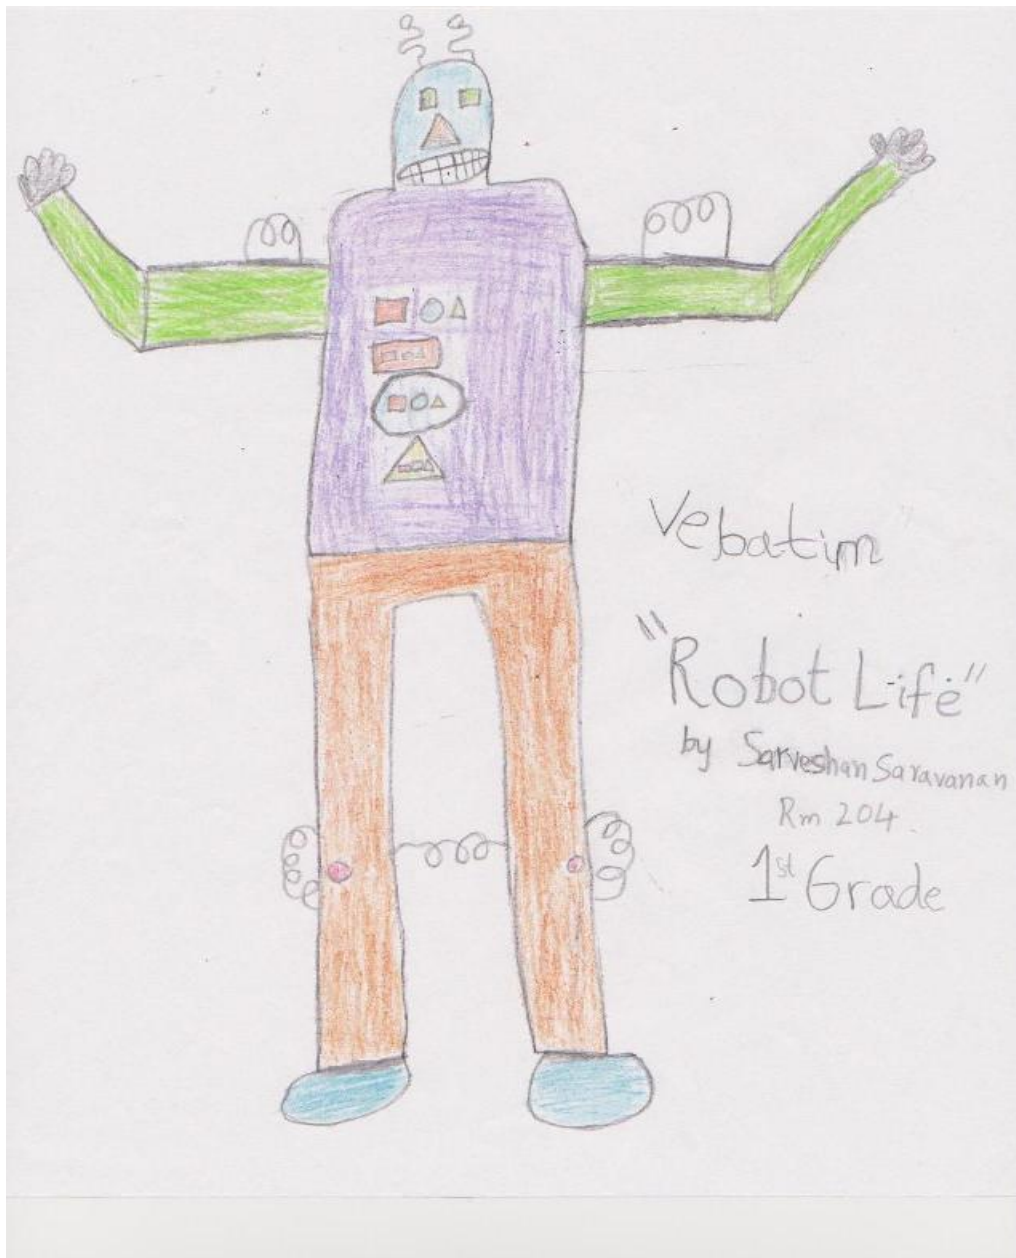 Vebatim
"Robot Life"
by Sarveshan Saravanan
Rm 204.
1st Grade